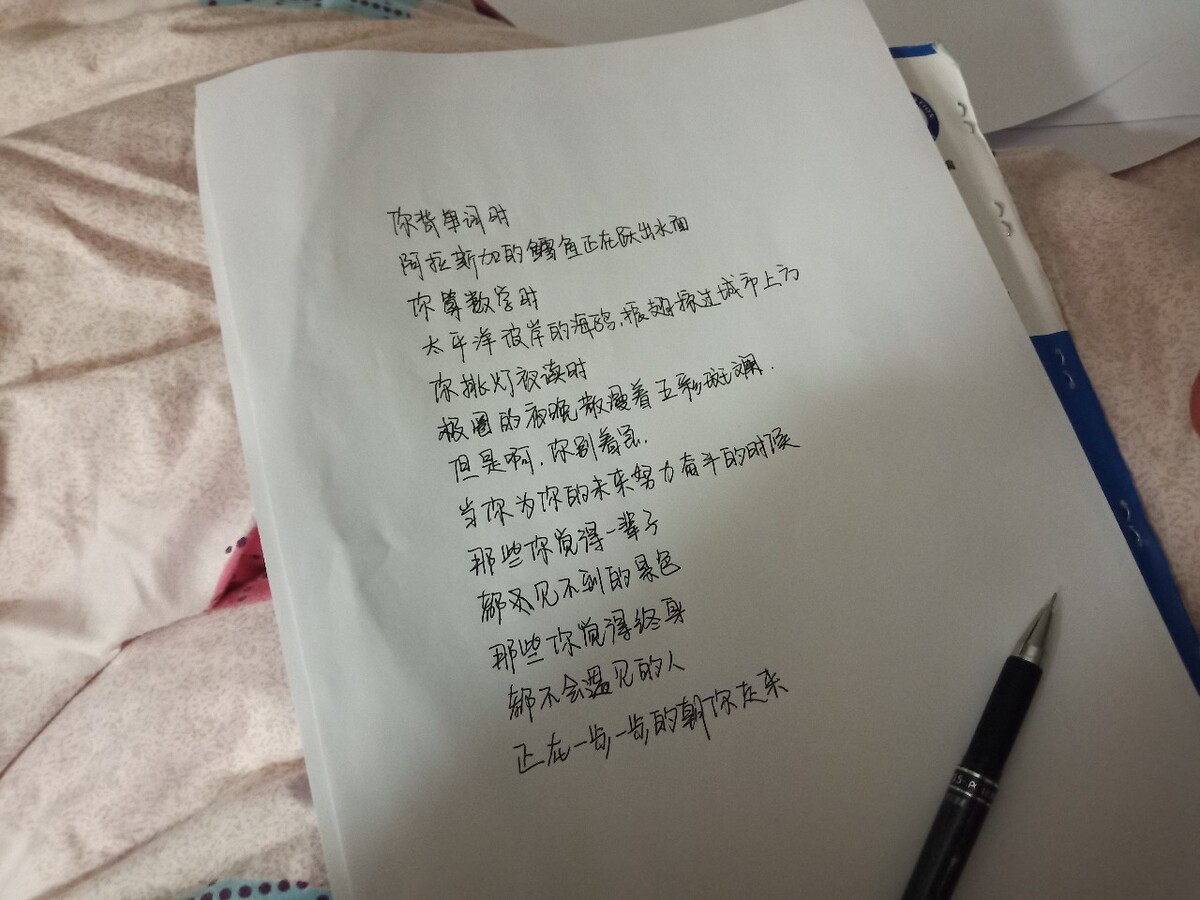 你背单词时
阿拉斯加的鳕鱼正在跃出水面
你算数学时
太平洋彼岸的海鸥,振翅掠过城市上方
你挑灯夜读时
极圈的夜晚散漫着五彩斑斓.
但是啊,你别着急.
当你为你的未来努力奋斗的时候
那些你觉得一辈子
都不见不到的景色
那些你觉得终身
都不会遇见的人
正在一步,一步,的朝你走来